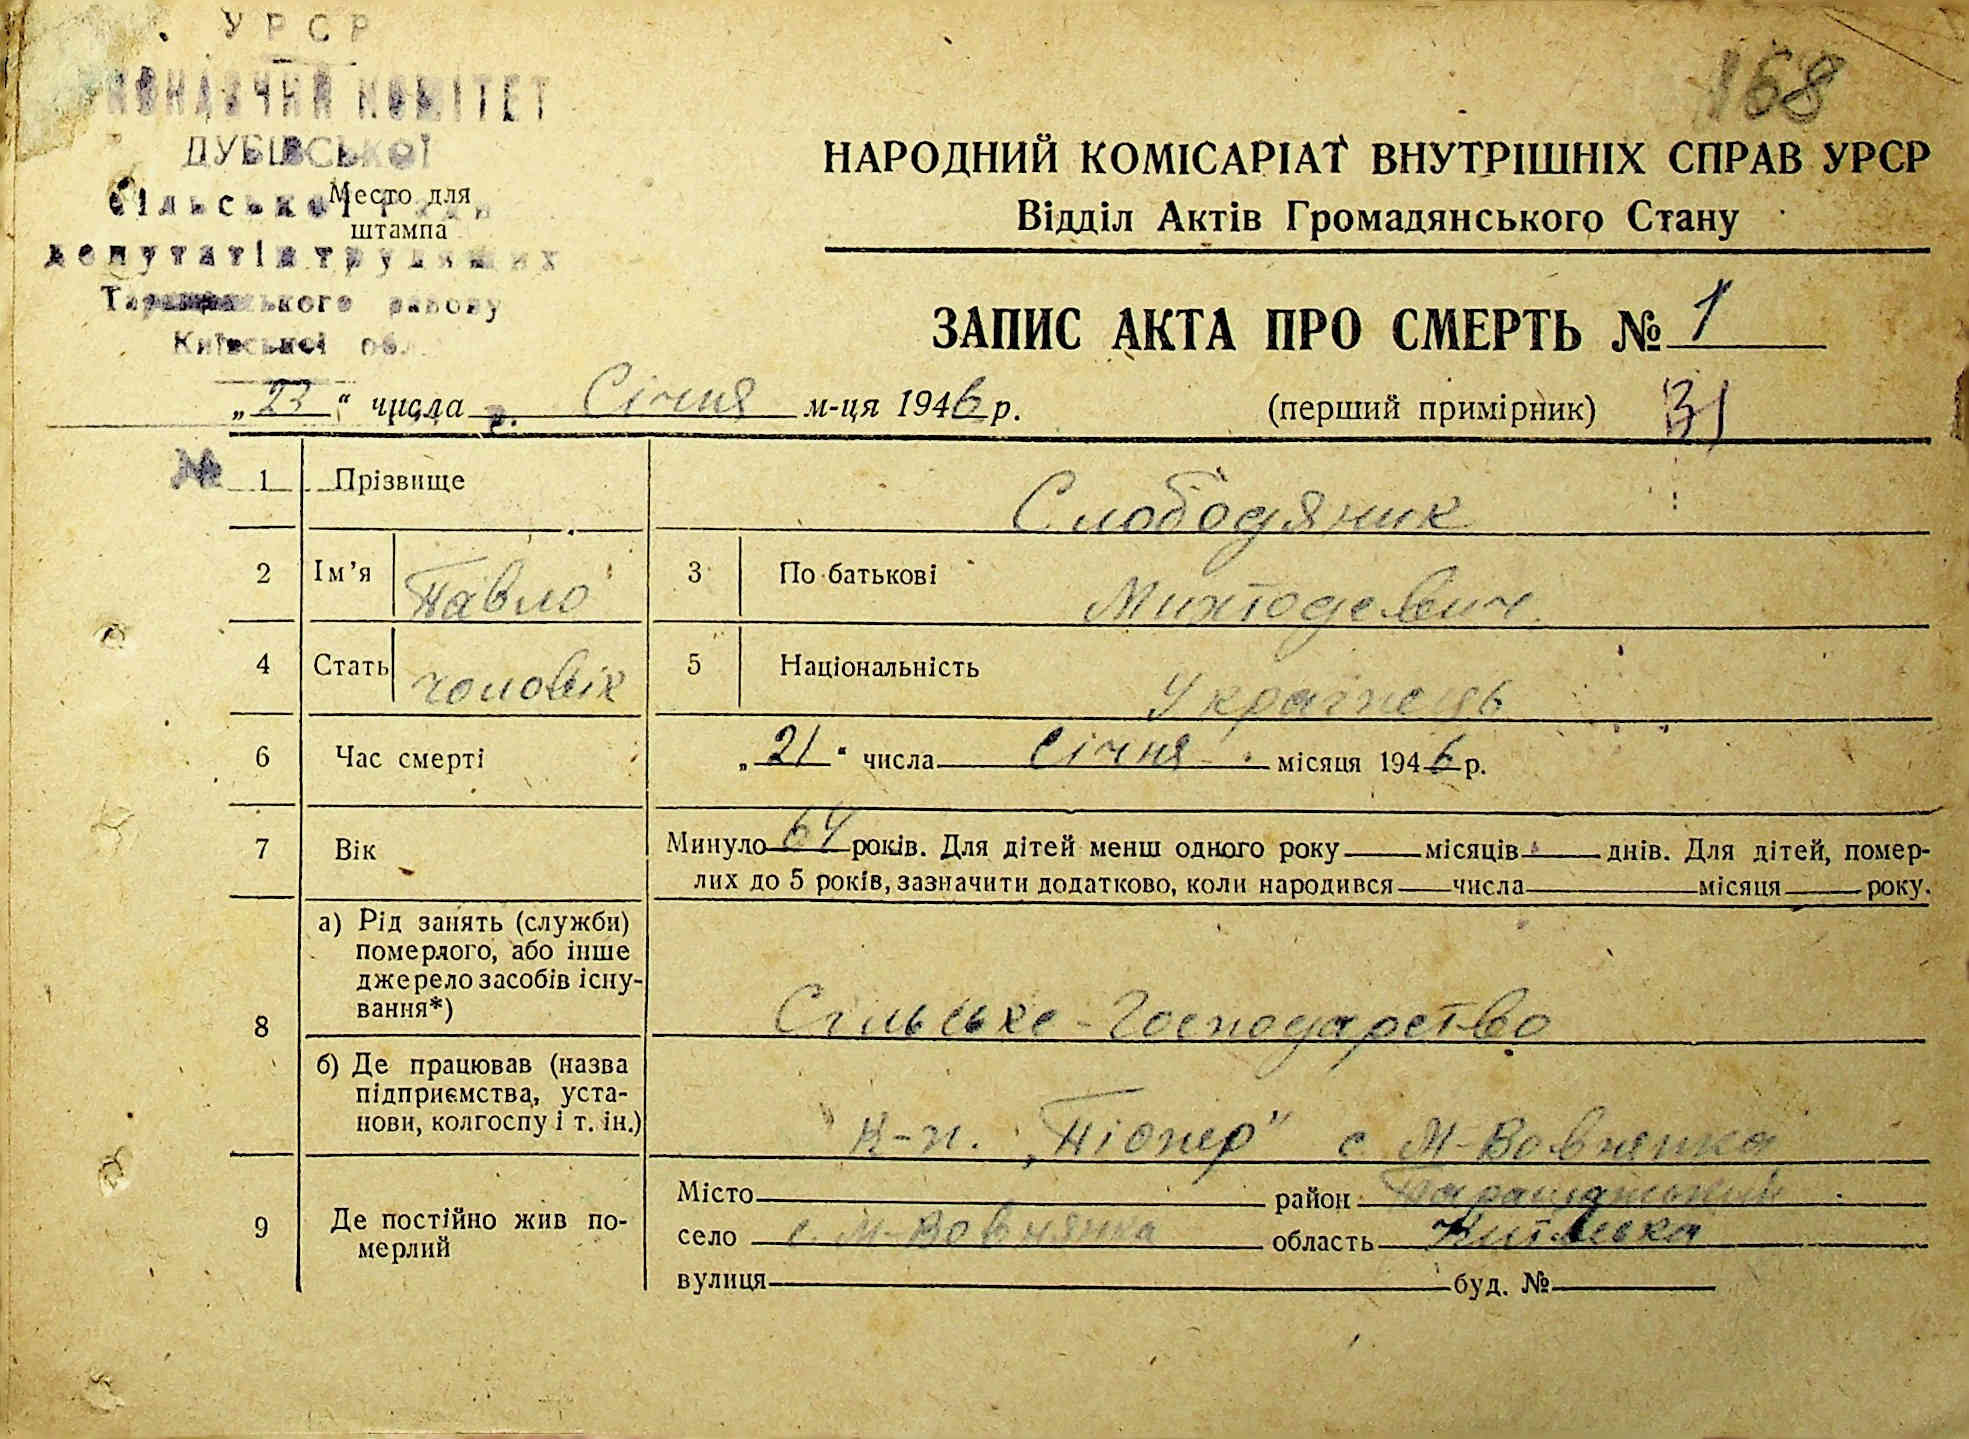 УРСР
ВИКОНАВЧИЙ КОМІТЕТ
ДУБІВСЬКОЇ
сільської Ради
депутатів трудящих
Таращанського району
Київської обл.
Место для
штампа
168
НАРОДНИЙ КОМІСАРІАТ ВНУТРІШНІХ СПРАВ УРСР
Відділ Актів Громадянського Стану
ЗАПИС АКТА ПРО СМЕРТЬ № 1
„23“ числа Січня м-ця 1946 р.
(перший примірник) 31
№ 1 Прізвище Слободяник
2 Ім’я Павло 3 По батькові Митодевич
4 Стать чоловік 5 Національність Українець
6 Час смерті „21“ числа Січня місяця 1946 р.
7 Вік Минуло 64 років. Для дітей менш одного року місяців днів. Для дітей, помер-
лих до 5 років, зазначити додатково, коли народився числа місяця року.
8 а) Рід занять (служби)
померлого, або інше
джерело засобів існу-
вання*)
Сільське-Господарство
б) Де працював (назва
підприємства, уста-
нови, колгоспу і т. ін.)
К-п. „Піонер" с. М-Вовнянка
9 Де постійно жив по-
мерлий
Місто район Таращанський
село с. М-Вовнянка область Київська
вулиця буд. №